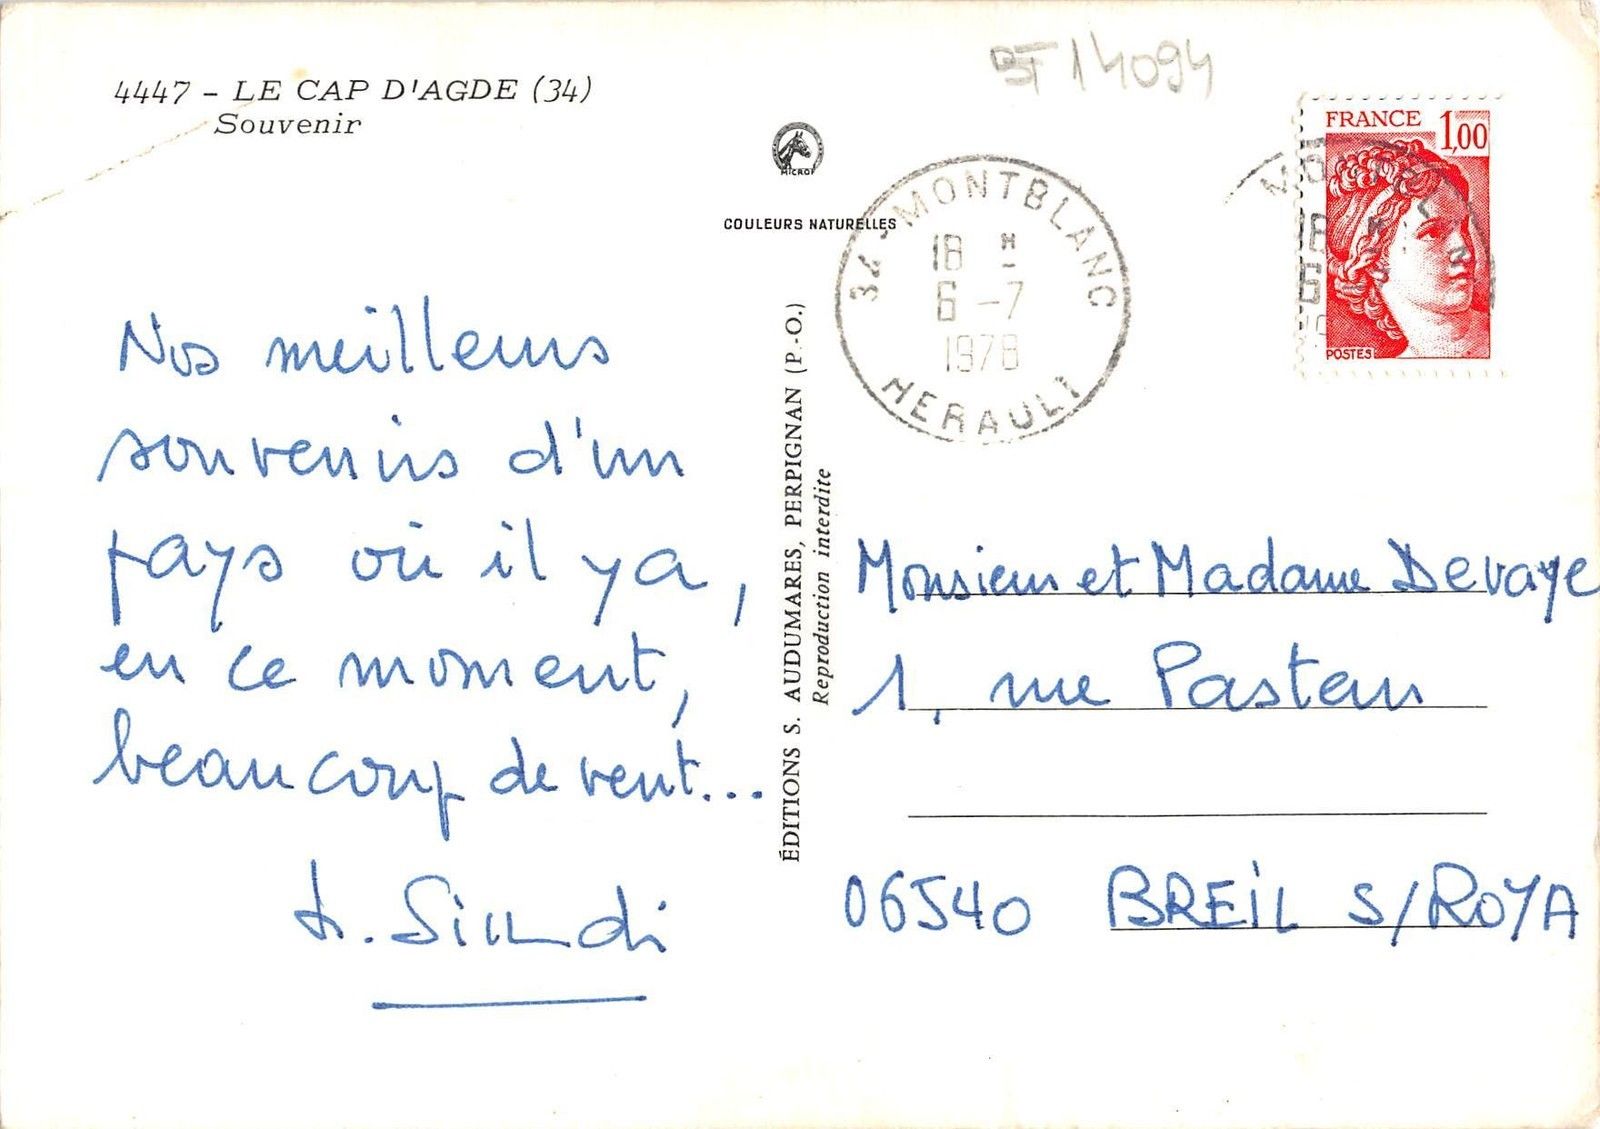 4447 - LE CAP D'AGDE (34)
Souvenir
BF 14094
MICRO
COULEURS NATURELLES
34 - MONTBLANC
18 H
6 - 7
1978
HERAULT
FRANCE 1,00
POSTES
Nos meilleurs
souvenirs d'un
pays où il y a,
en ce moment,
beaucoup de vent...
ÉDITIONS S. AUDUMARES, PERPIGNAN (P.-O.)
Reproduction interdite
Monsieur et Madame Devaye
1, rue Pasteur
06540 BREIL S/ROYA